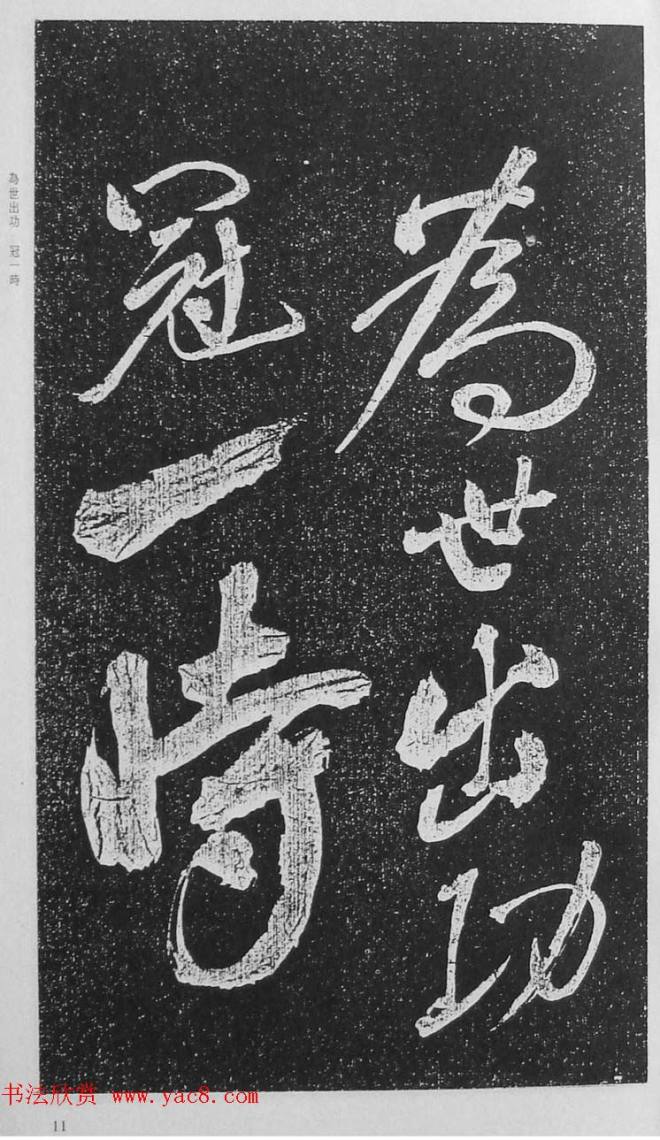 為世出功
冠一時
為世出功 冠一時
书法欣赏 www.yac8.com
11